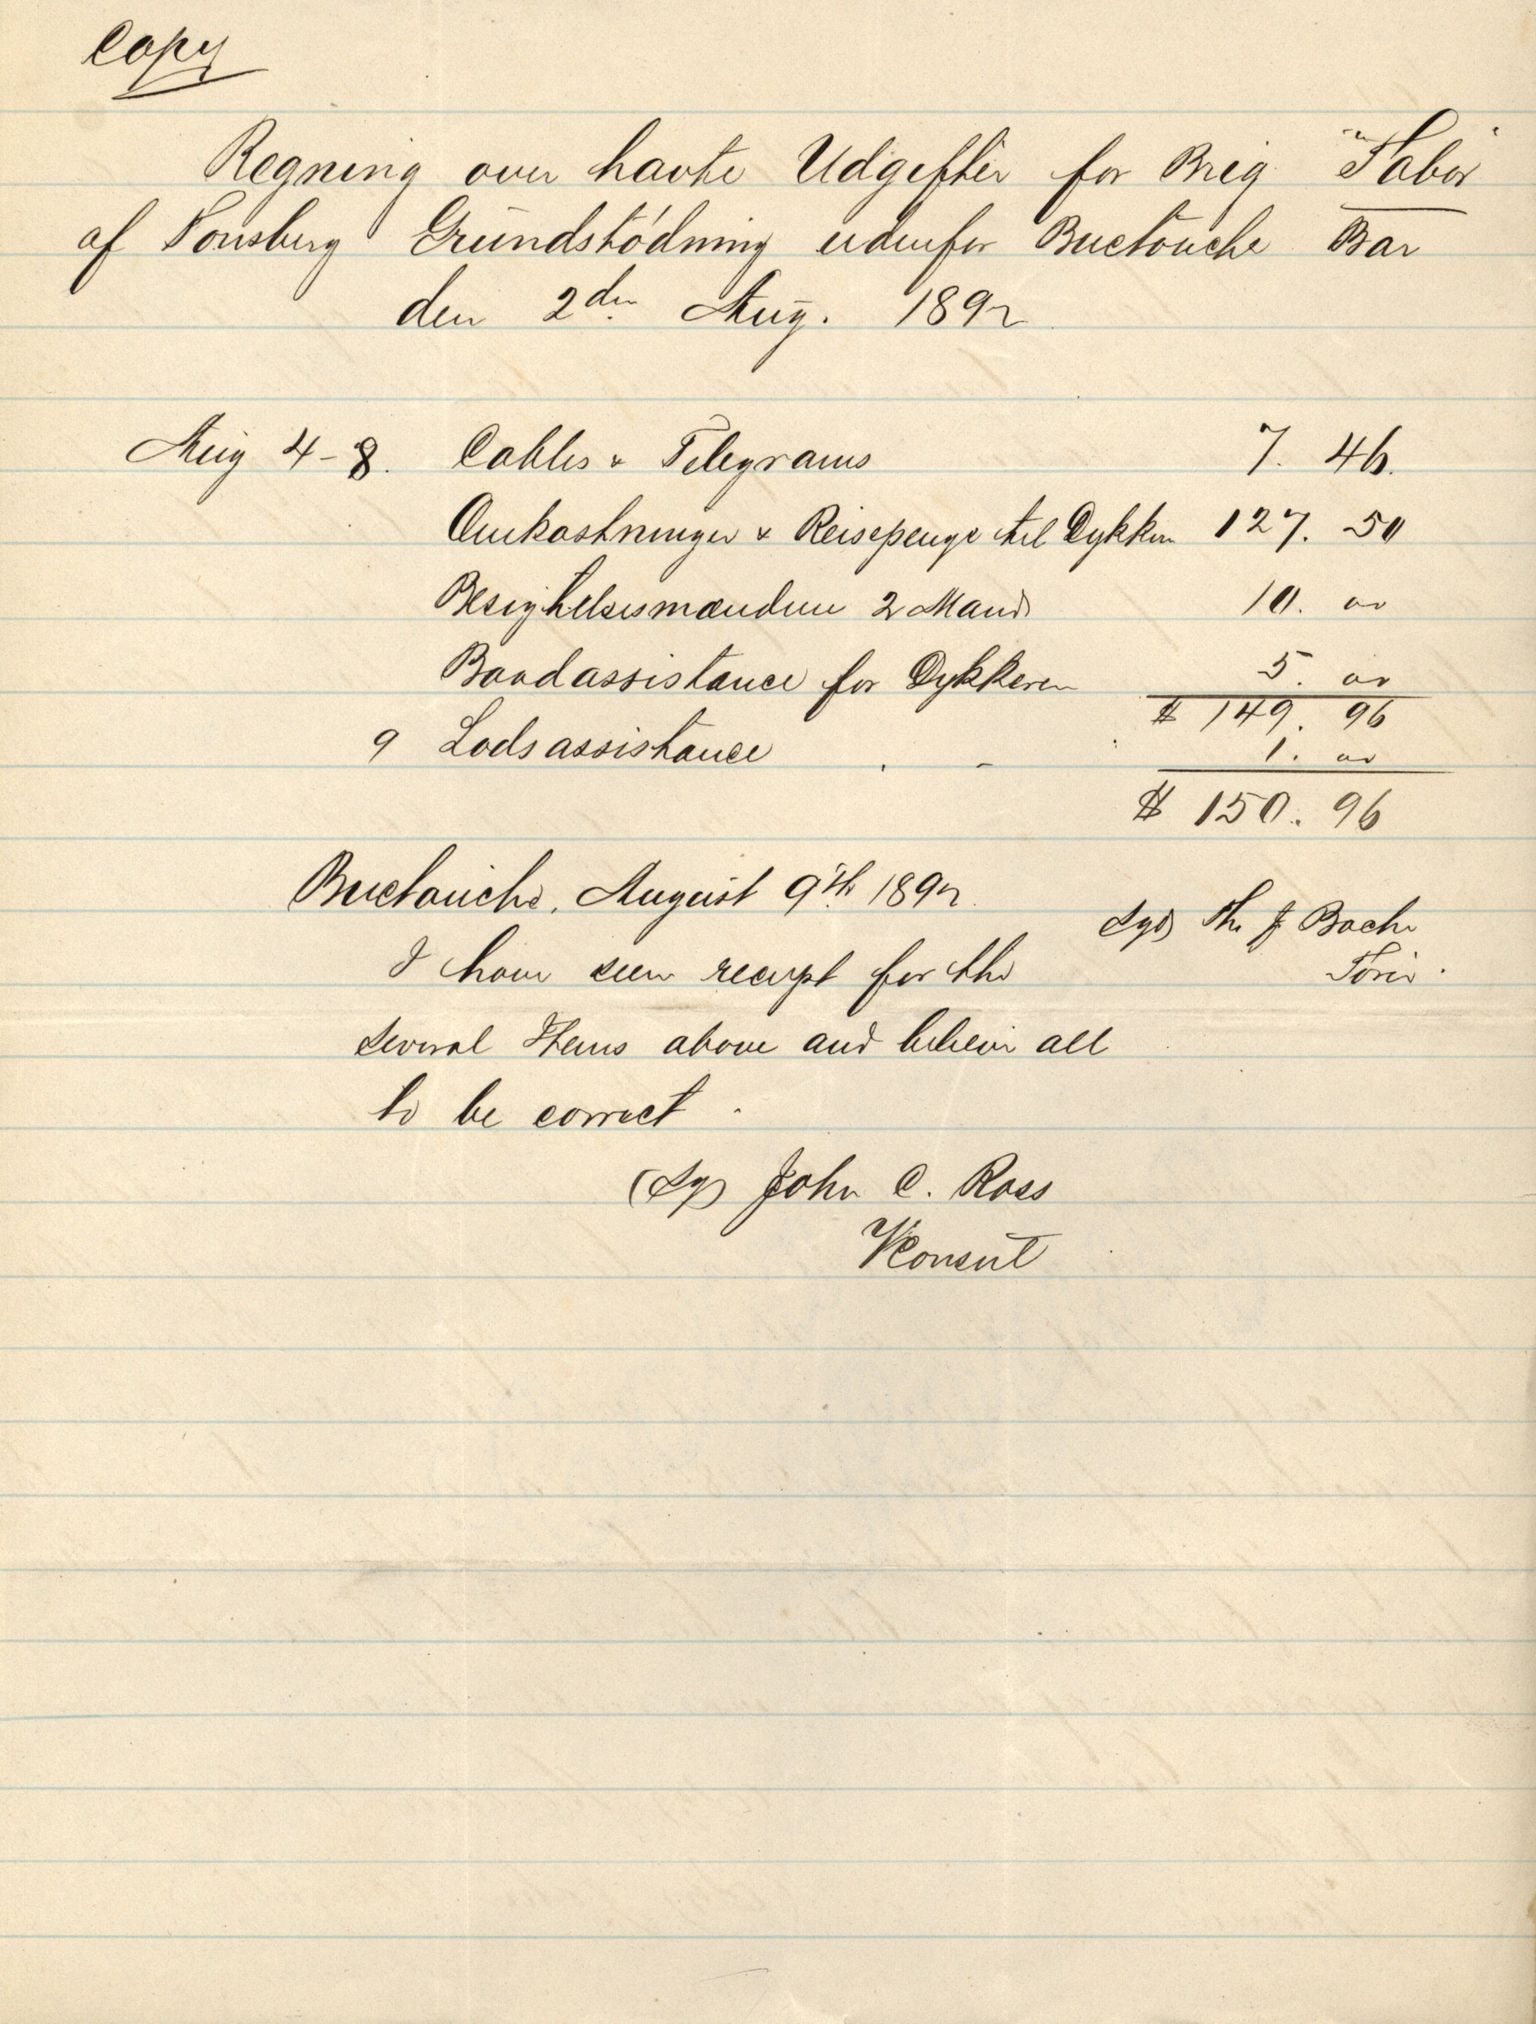 Copy
Regning over havte Udgifter for Brig "Tabor"
af Tonsberg Grundstödning udenfor Buctouche Bar
den 2den Aug. 1892
Aug 4-8. Cables & Telegrams 7. 46.
Omkostninger & Reisepenge til Dykkeren 127. 50
Besigtelsesmændene 2 Mand 10. 00
Baadassistance for Dykkeren 5. 00
$ 149. 96
9 Lodsassistance - 1. 00
$ 150. 96
Buctouche, August 9th 1892
Sgd Th J Bache
I have seen receipt for the
several Items above and believe all
to be correct.
(Sg) John C. Ross
VConsul